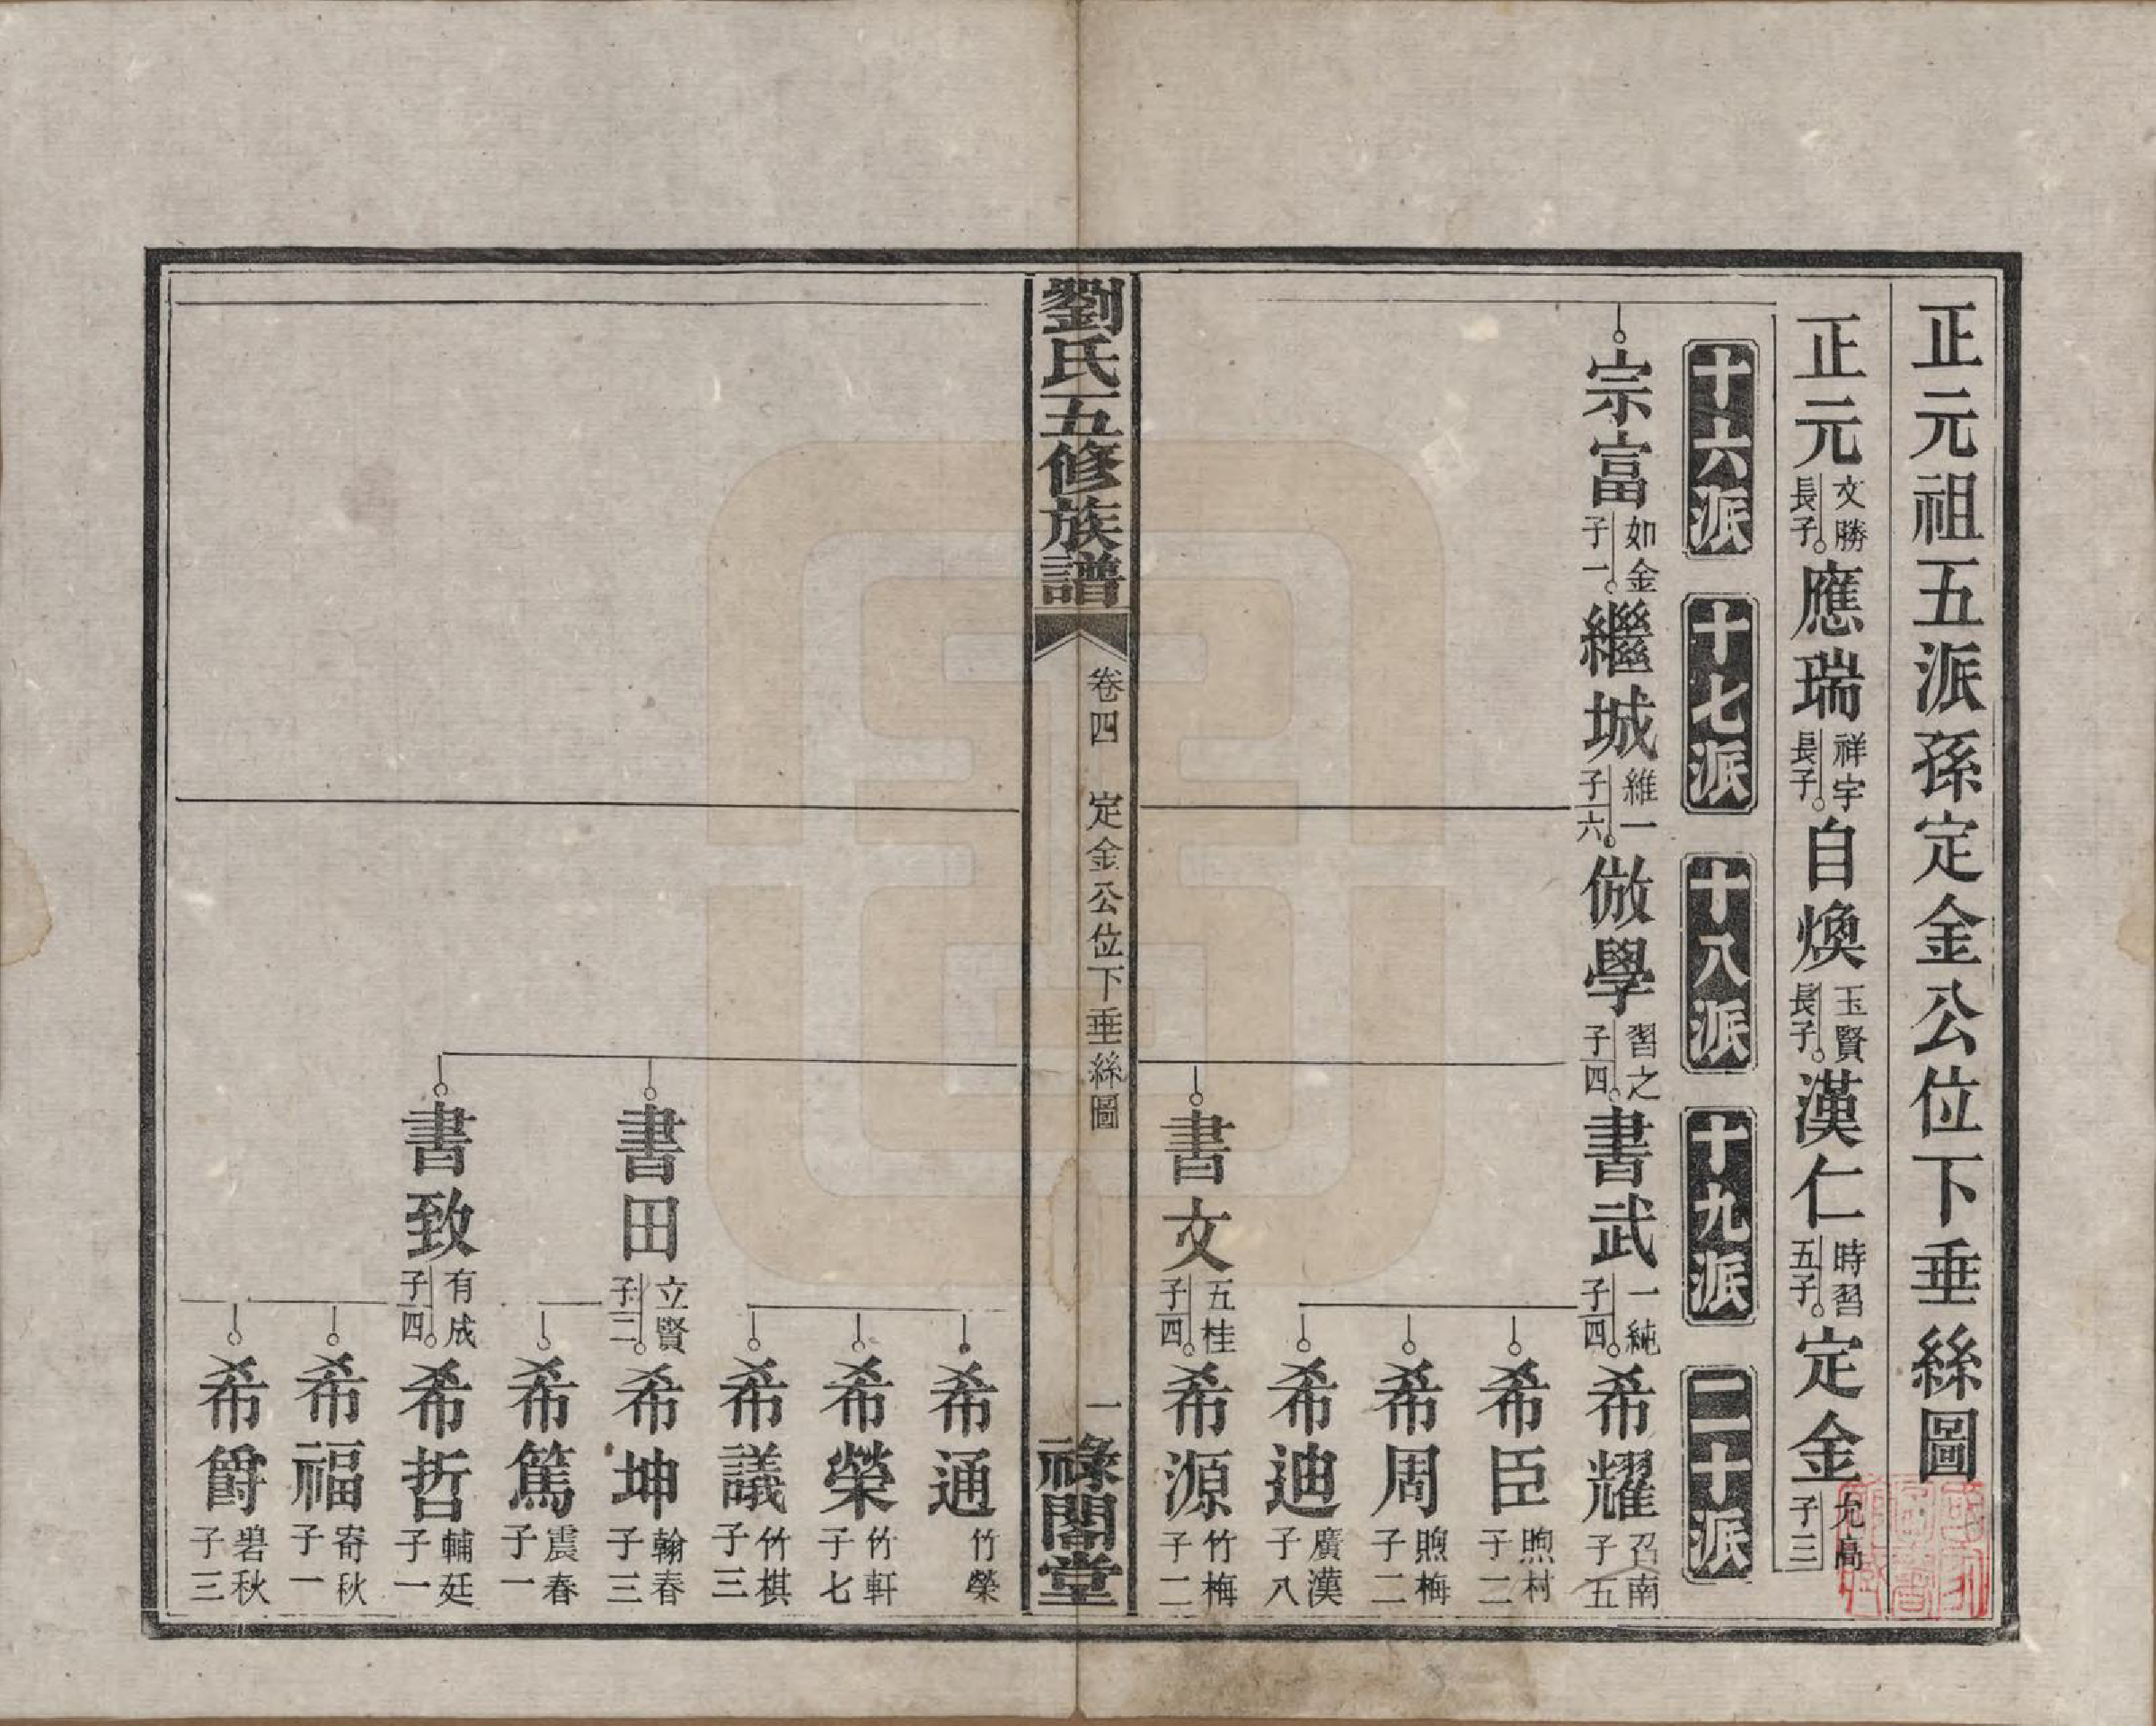 正元祖五派孫定金公位下垂絲圖
正元 文勝長子 應瑞 祥宇長子 自煥 玉賢長子 漢仁 時習五子 定金 允高子三
十六派 十七派 十八派 十九派 二十派
宗富 如金子一 繼城 維一子六 倣學 習之子四 書武 一純子四 希耀 召南子五
希臣 煦村子二
希周 煦梅子二
希迪 廣漢子八
書文 五桂子四 希源 竹梅子二
劉氏五修族譜 卷四 定金公位下垂絲圖 一 祿閣堂
希通 竹榮
希榮 竹軒子七
希議 竹棋子三
書田 立賢子二 希坤 翰春子三
希篤 震春子一
書致 有成子四 希哲 輔廷子一
希福 寄秋子一
希爵 碧秋子三